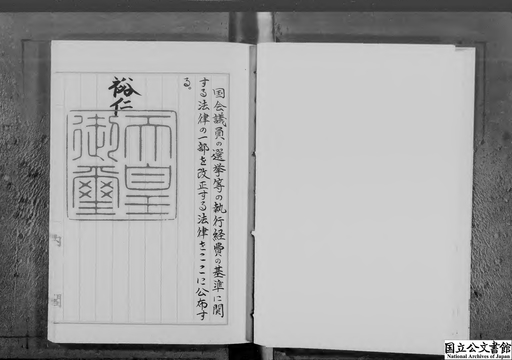 国会議員の選挙等の執行経費の基準に関
する法律の一部を改正する法律をここに公布す
る。
裕仁
天皇
御璽
国立公文書館
National Archives of Japan